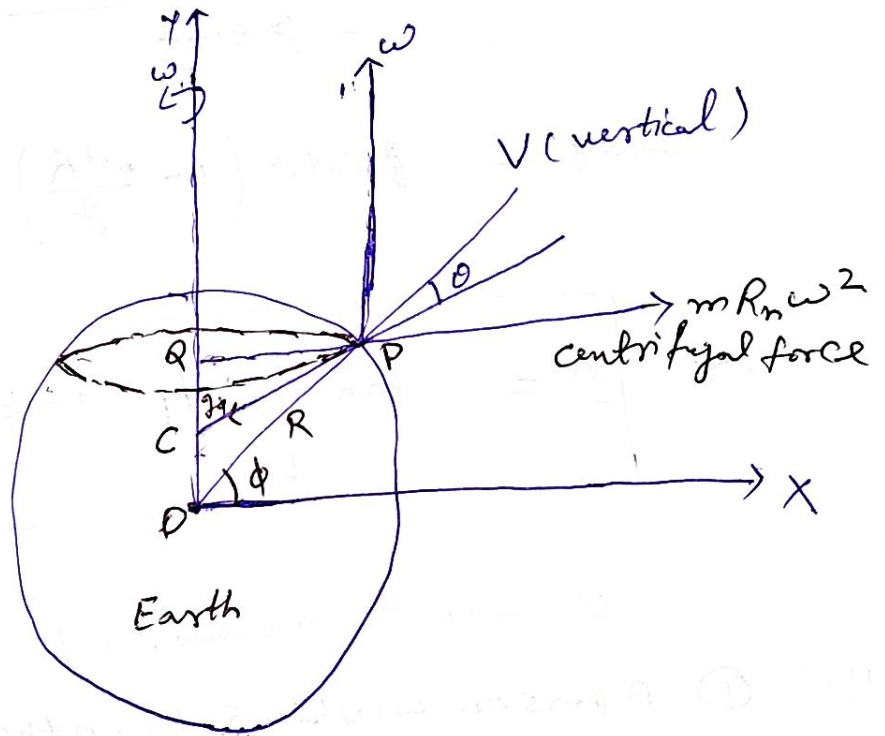 Y
ω
ω
V (vertical)
θ
mRₙω²
centrifugal force
Q
P
C
R
ϕ
O
X
Earth
① A person